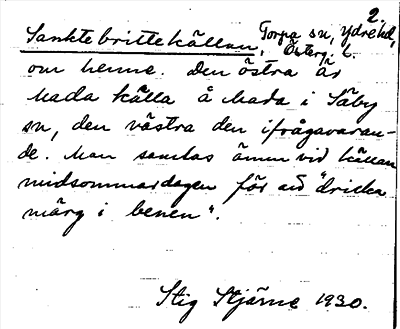 2.
Sankte brittekällan, Torpa sn, Ydre hd,
Österg. l.
om henne. Den östra är
Mada källa å Mada i Säby
sn, den västra den ifrågavaran-
de. Man samlas ännu vid källan
midsommardagen för att "dricka
märg i benen".
Stig Stjärne 1930.